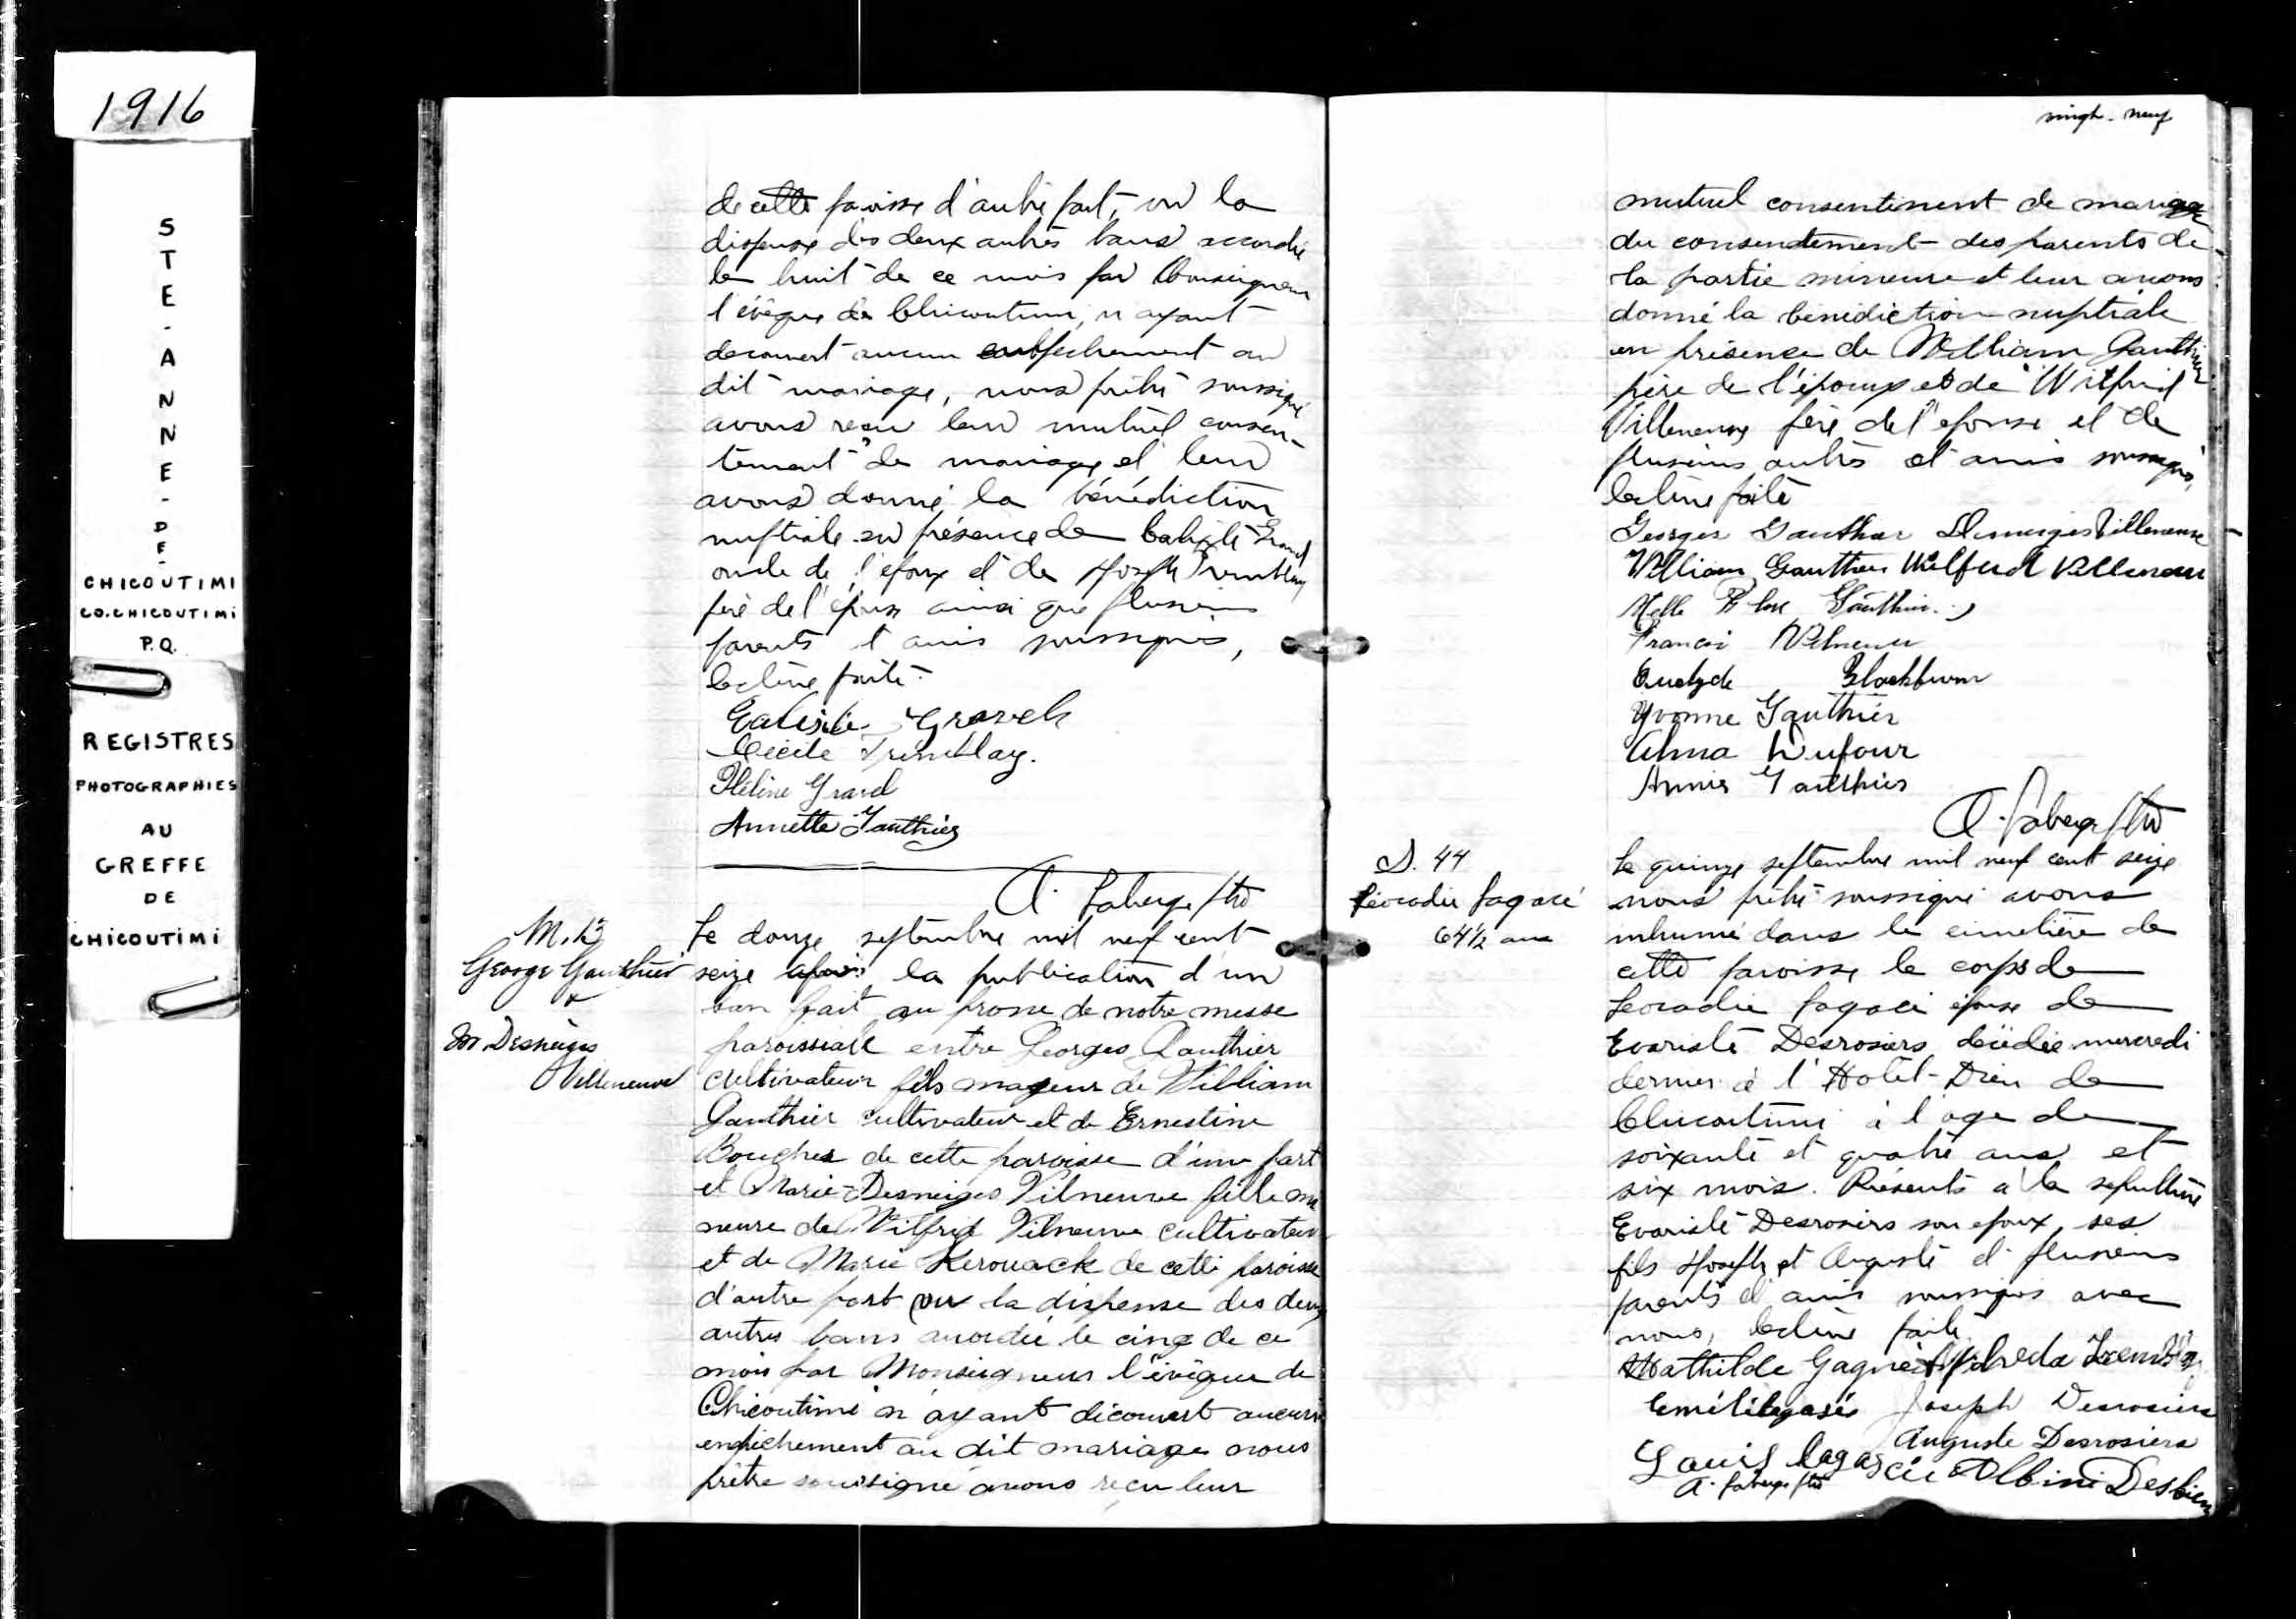 1916
STE-ANNE-DE-
CHICOUTIMI
CO.CHICOUTIMI
P.Q.
REGISTRES
PHOTOGRAPHIES
AU
GREFFE
DE
CHICOUTIMI
de cette paroisse d'autre part, vu la
dispense des deux autres bans accordée
le huit de ce mois par Monseigneur
l'évêque de Chicoutimi, n'ayant
découvert aucun empêchement au
dit mariage, nous prêtre soussigné
avons reçu leur mutuel consen-
tement de mariage et leur
avons donné la bénédiction
nuptiale en présence de Calixte Gravel
oncle de l'époux et de Joseph Tremblay
père de l'épouse ainsi que plusieurs
parents et amis soussignés,
lecture faite.
Calixte Gravel
Cécile Tremblay.
Héline Gravel
Annette Gauthier
A. Laberge ptre
M. 13
George Gauthier
&
M. Desneiges
Villeneuve
Le douze septembre mil neuf cent
seize après la publication d'un
ban fait au prone de notre messe
paroissiale entre Georges Gauthier
cultivateur fils majeur de William
Gauthier cultivateur et de Ernestine
Boucher de cette paroisse d'une part
et Marie-Desneiges Vilneuve fille mi
neure de Wilfrid Vilneuve cultivateur
et de Marie Kerouack de cette paroisse
d'autre part vu la dispense des deux
autres bans accordée le cinq de ce
mois par Monseigneur l'évêque de
Chicoutimi n'ayant découvert aucun
empêchement au dit mariage nous
prêtre soussigné avons reçu leur
vingt-neuf
mutuel consentement de mariage
du consentement des parents de
la partie mineure et leur avons
donné la bénédiction nuptiale
en présence de William Gauthier
père de l'époux et de Wilfrid
Villeneuve père de l'épouse et de
plusieurs autres et amis soussignés,
lecture faite
Georges Gauthier Desneiges Villeneuve
William Gauthier Wilfrid Villeneuve
Melle Rose Gauthier
Francis Vilneuve
Euclyde Blackburn
Yvonne Gauthier
Alma Dufour
Annie Gauthier
A. Laberge ptre
S. 44
Léocadie Lagacé
64½ ans
Le quinze septembre mil neuf cent seize
nous prêtre soussigné avons
inhumé dans le cimetière de
cette paroisse le corps de
Léocadie Lagacé épouse de
Evariste Desrosiers décédée mercredi
dernier à l'Hotel-Dieu de
Chicoutimi à l'age de
soixante et quatre ans et
six mois. Présents à la sépulture
Evariste Desrosiers son époux, ses
fils Joseph et Auguste et plusieurs
parents et amis soussignés avec
nous, lecture faite.
Mathilde Gagné Tremblay
Lagacée Joseph Desrosiers
Auguste Desrosiers
Louis Lagacée Albini Desbiens
A. Laberge ptre